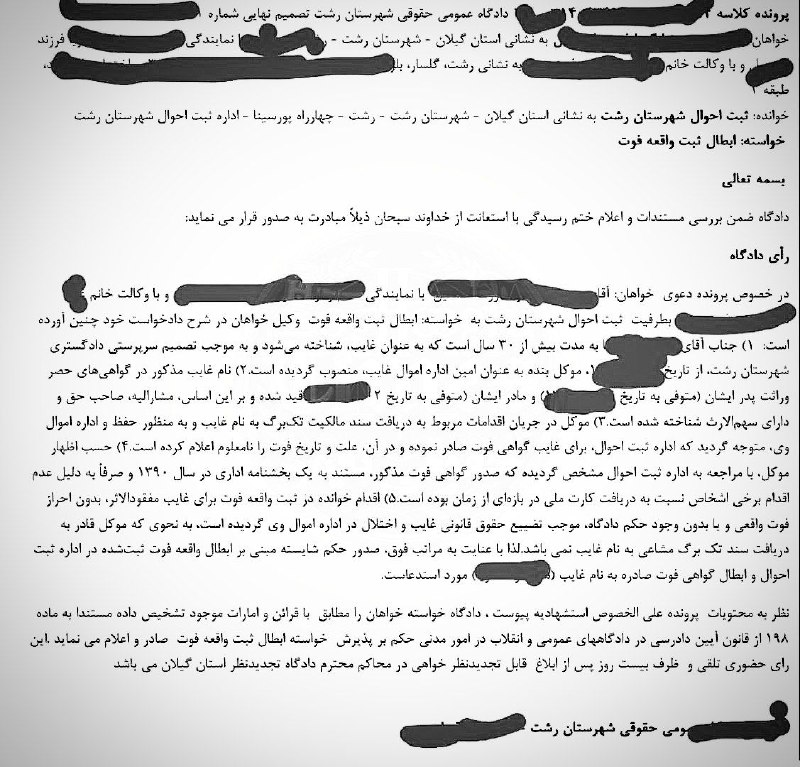 پرونده کلاسه دادگاه عمومی حقوقی شهرستان رشت تصمیم نهایی شماره
خواهان به نشانی استان گیلان - شهرستان رشت - نمایندگی فرزند
و با وکالت خانم به نشانی رشت، گلسار،
طبقه ۲
خوانده: ثبت احوال شهرستان رشت به نشانی استان گیلان - شهرستان رشت - رشت - چهارراه پورسینا - اداره ثبت احوال شهرستان رشت
خواسته: ابطال ثبت واقعه فوت
بسمه تعالی
دادگاه ضمن بررسی مستندات و اعلام ختم رسیدگی با استعانت از خداوند سبحان ذیلاً مبادرت به صدور قرار می نماید:
رأی دادگاه
در خصوص پرونده دعوی خواهان: آقا با نمایندگی و با وکالت خانم
بطرفیت ثبت احوال شهرستان رشت به خواسته: ابطال ثبت واقعه فوت وکیل خواهان در شرح دادخواست خود چنین آورده
است: ۱) جناب آقای به مدت بیش از ۳۰ سال است که به عنوان غایب، شناخته می‌شود و به موجب تصمیم سرپرستی دادگستری
شهرستان رشت، از تاریخ موکل بنده به عنوان امین اداره اموال غایب، منصوب گردیده است.۲) نام غایب مذکور در گواهی‌های حصر
وراثت پدر ایشان (متوفی به تاریخ ) و مادر ایشان (متوفی به تاریخ ۲ قید شده و بر این اساس، مشارالیه، صاحب حق و
دارای سهم‌الارث شناخته شده است.۳) موکل در جریان اقدامات مربوط به دریافت سند مالکیت تک‌برگ به نام غایب و به منظور حفظ و اداره اموال
وی، متوجه گردید که اداره ثبت احوال، برای غایب گواهی فوت صادر نموده و در آن، علت و تاریخ فوت را نامعلوم اعلام کرده است.۴) حسب اظهار
موکل، با مراجعه به اداره ثبت احوال مشخص گردیده که صدور گواهی فوت مذکور، مستند به یک بخشنامه اداری در سال ۱۳۹۰ و صرفاً به دلیل عدم
اقدام برخی اشخاص نسبت به دریافت کارت ملی در بازه‌ای از زمان بوده است.۵) اقدام خوانده در ثبت واقعه فوت برای غایب مفقودالاثر، بدون احراز
فوت واقعی و یا بدون وجود حکم دادگاه، موجب تضییع حقوق قانونی غایب و اختلال در اداره اموال وی گردیده است، به نحوی که موکل قادر به
دریافت سند تک برگ مشاعی به نام غایب نمی باشد.لذا با عنایت به مراتب فوق، صدور حکم شایسته مبنی بر ابطال واقعه فوت ثبت‌شده در اداره ثبت
احوال و ابطال گواهی فوت صادره به نام غایب ( ) مورد استدعاست.
نظر به محتویات پرونده علی الخصوص استشهادیه پیوست ، دادگاه خواسته خواهان را مطابق با قرائن و امارات موجود تشخیص داده مستندا به ماده
۱۹۸ از قانون آیین دادرسی در دادگاههای عمومی و انقلاب در امور مدنی حکم بر پذیرش خواسته ابطال ثبت واقعه فوت صادر و اعلام می نماید .این
رای حضوری تلقی و ظرف بیست روز پس از ابلاغ قابل تجدیدنظر خواهی در محاکم محترم دادگاه تجدیدنظر استان گیلان می باشد
حقوقی شهرستان رشت -